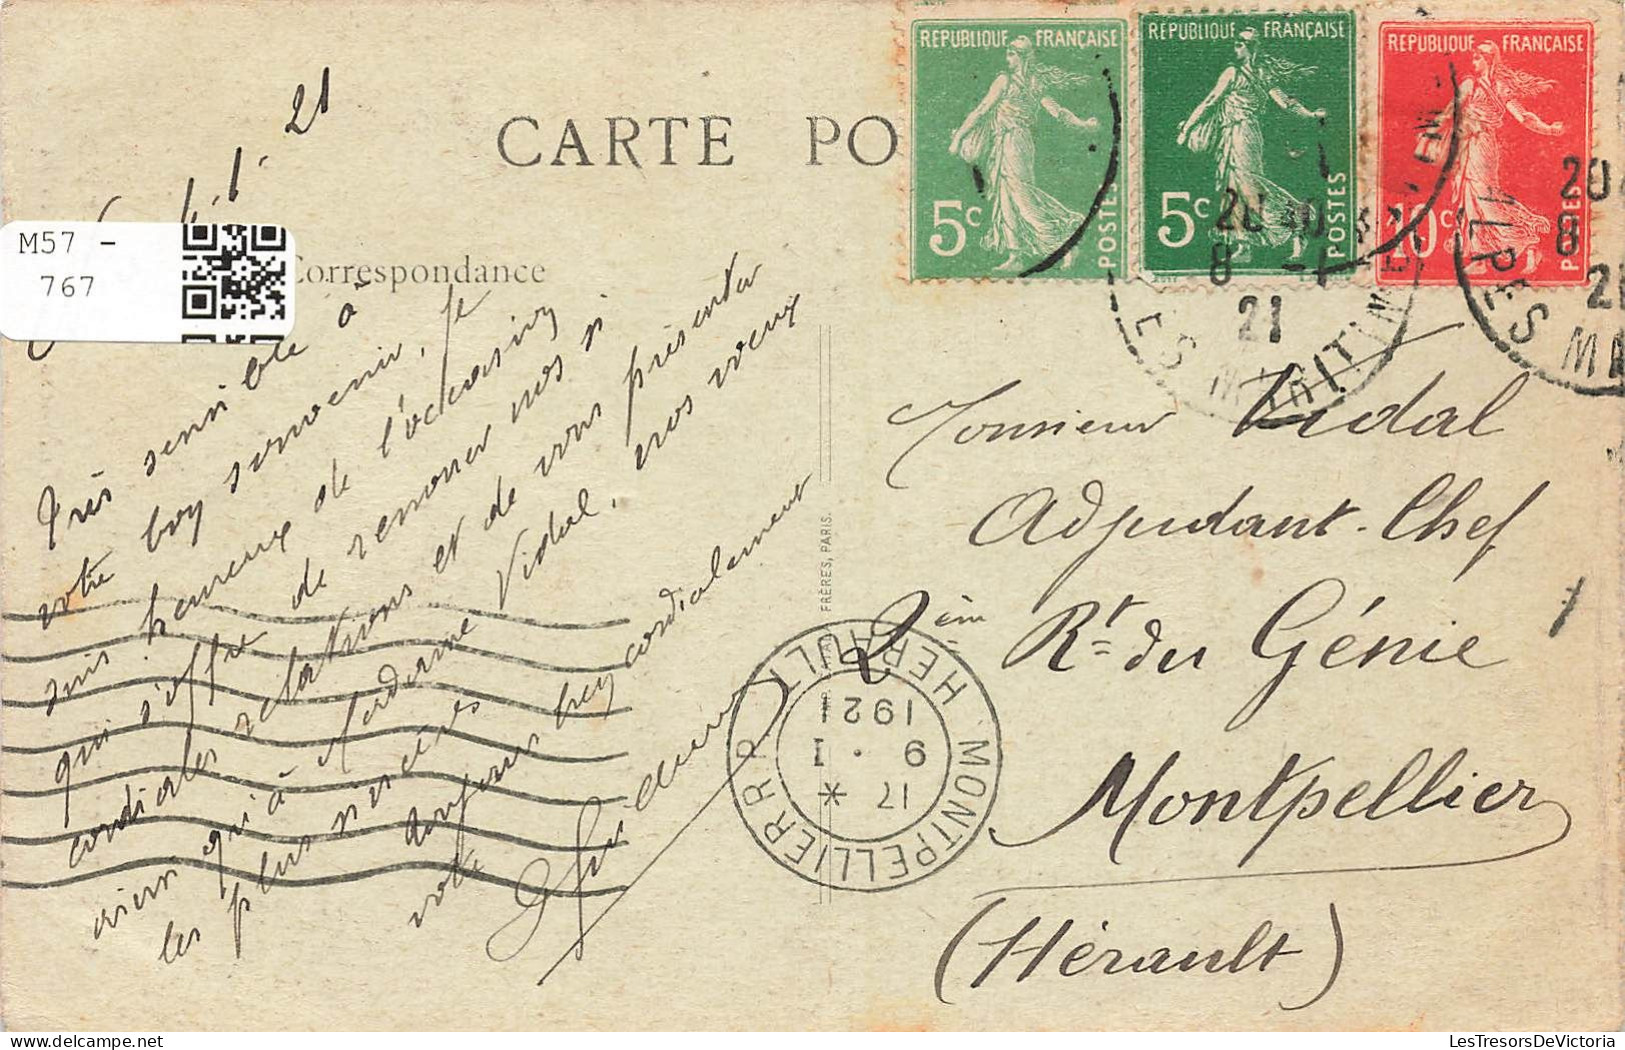 RÉPUBLIQUE FRANÇAISE
5c POSTES
RÉPUBLIQUE FRANÇAISE
5c POSTES
RÉPUBLIQUE FRANÇAISE
10c POSTES
20 30
8 - 1
21
ALPES MARITIMES
20
8
21
ALPES MA
CARTE PO
Correspondance
M57 -
767
6.1.21
Très sensible à
votre bon souvenir, je
suis heureux de l'occasion
qui s'offre de renouer nos si
cordiales relations et de vous présenter
ainsi qu'à Madame Vidal, nos voeux
les plus sincères
Toujours bien cordialement
votre
FRÈRES, PARIS.
MONTPELLIER R.P.
HÉRAULT
17 *
9 . 1
1921
Monsieur Vidal
Adjudant-Chef
2ème Rt. du Génie
Montpellier
(Hérault)
LesTresorsDeVictoria